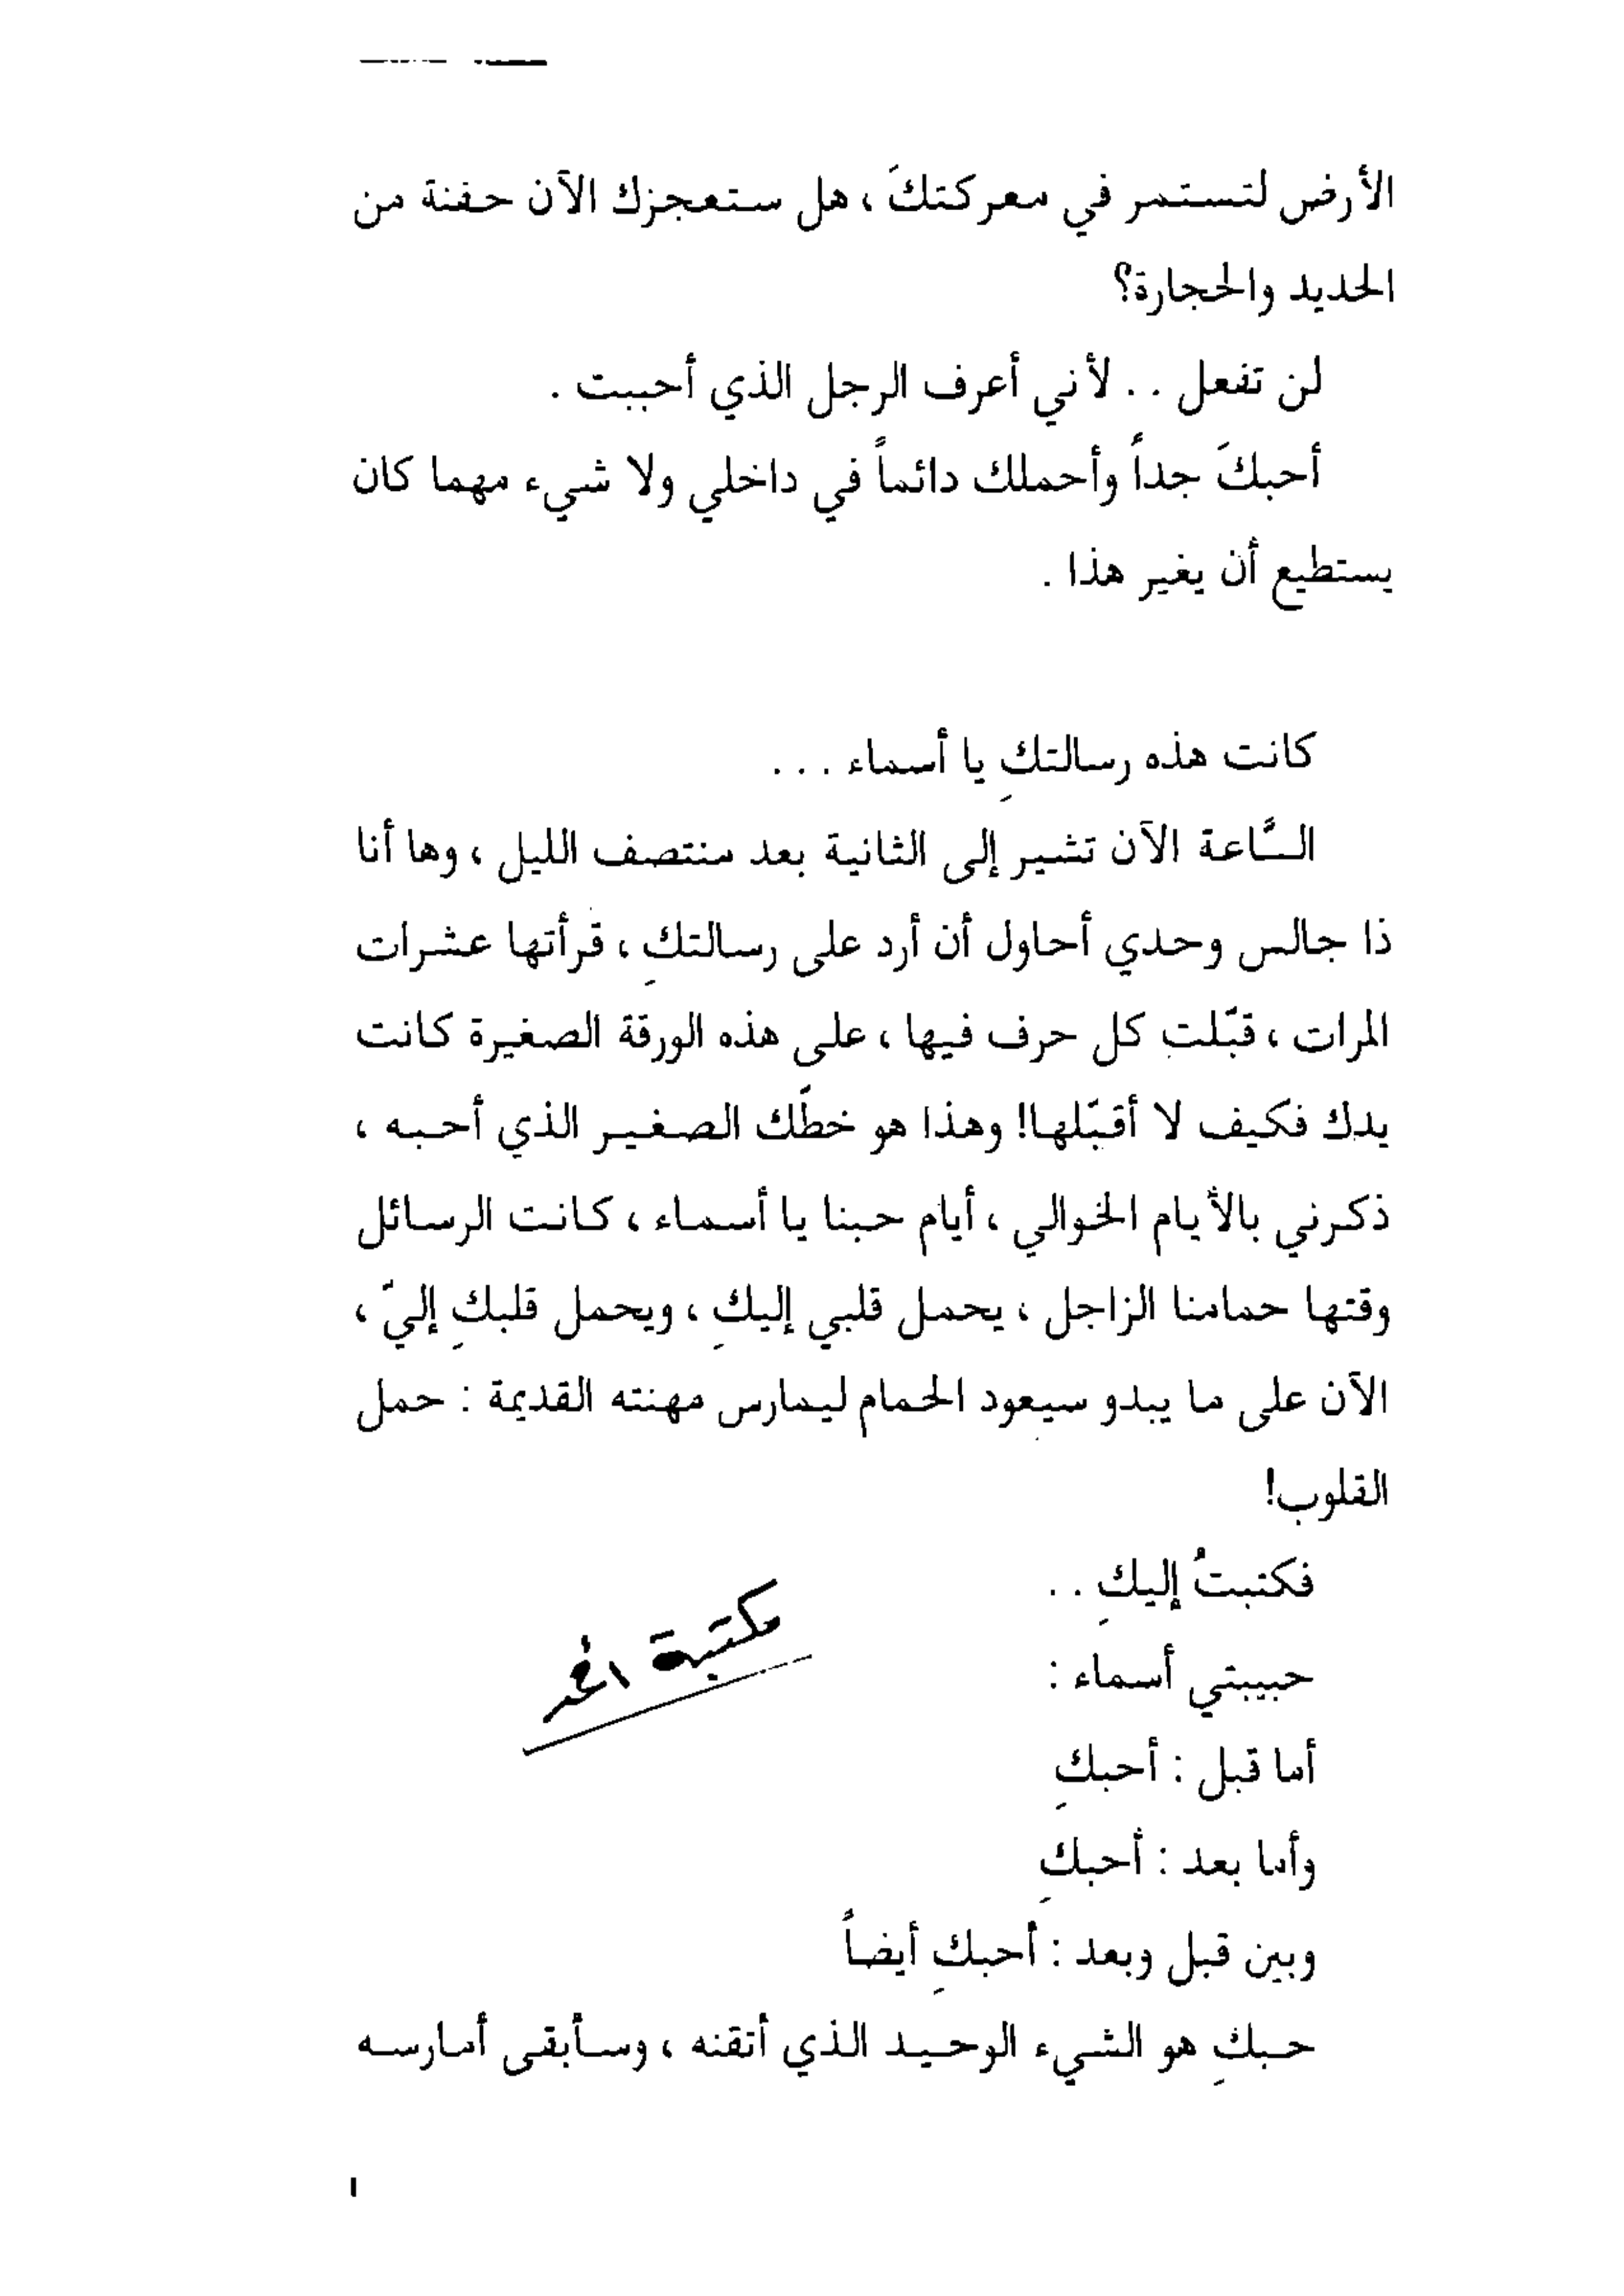 الأرض لتستمر في معركتكَ ، هل ستعجزك الآن حفنة من
الحديد والحجارة؟
لن تفعل . . لأني أعرف الرجل الذي أحببت .
أحبكَ جداً وأحملك دائماً في داخلي ولا شيء مهما كان
يستطيع أن يغير هذا .
كانت هذه رسالتكِ يا أسماء . . .
السَّاعة الآن تشير إلى الثانية بعد منتصف الليل ، وها أنا
ذا جالس وحدي أحاول أن أرد على رسالتكِ ، قرأتها عشرات
المرات ، قبّلت كل حرف فيها ، على هذه الورقة الصغيرة كانت
يدك فكيف لا أقبّلها! وهذا هو خطّك الصغير الذي أحبه ،
ذكرني بالأيام الخوالي ، أيام حبنا يا أسماء ، كانت الرسائل
وقتها حمامنا الزاجل ، يحمل قلبي إليكِ ، ويحمل قلبكِ إليّ ،
الآن على ما يبدو سيعود الحمام ليمارس مهنته القديمة : حمل
القلوب!
فكتبتُ إليكِ . .
مكتبة
حبيبتي أسماء :
أما قبل : أحبكِ
وأما بعد : أحبكِ
وبين قبل وبعد : أحبكِ أيضاً
حبكِ هو الشيء الوحيد الذي أتقنه ، وسأبقى أمارسه